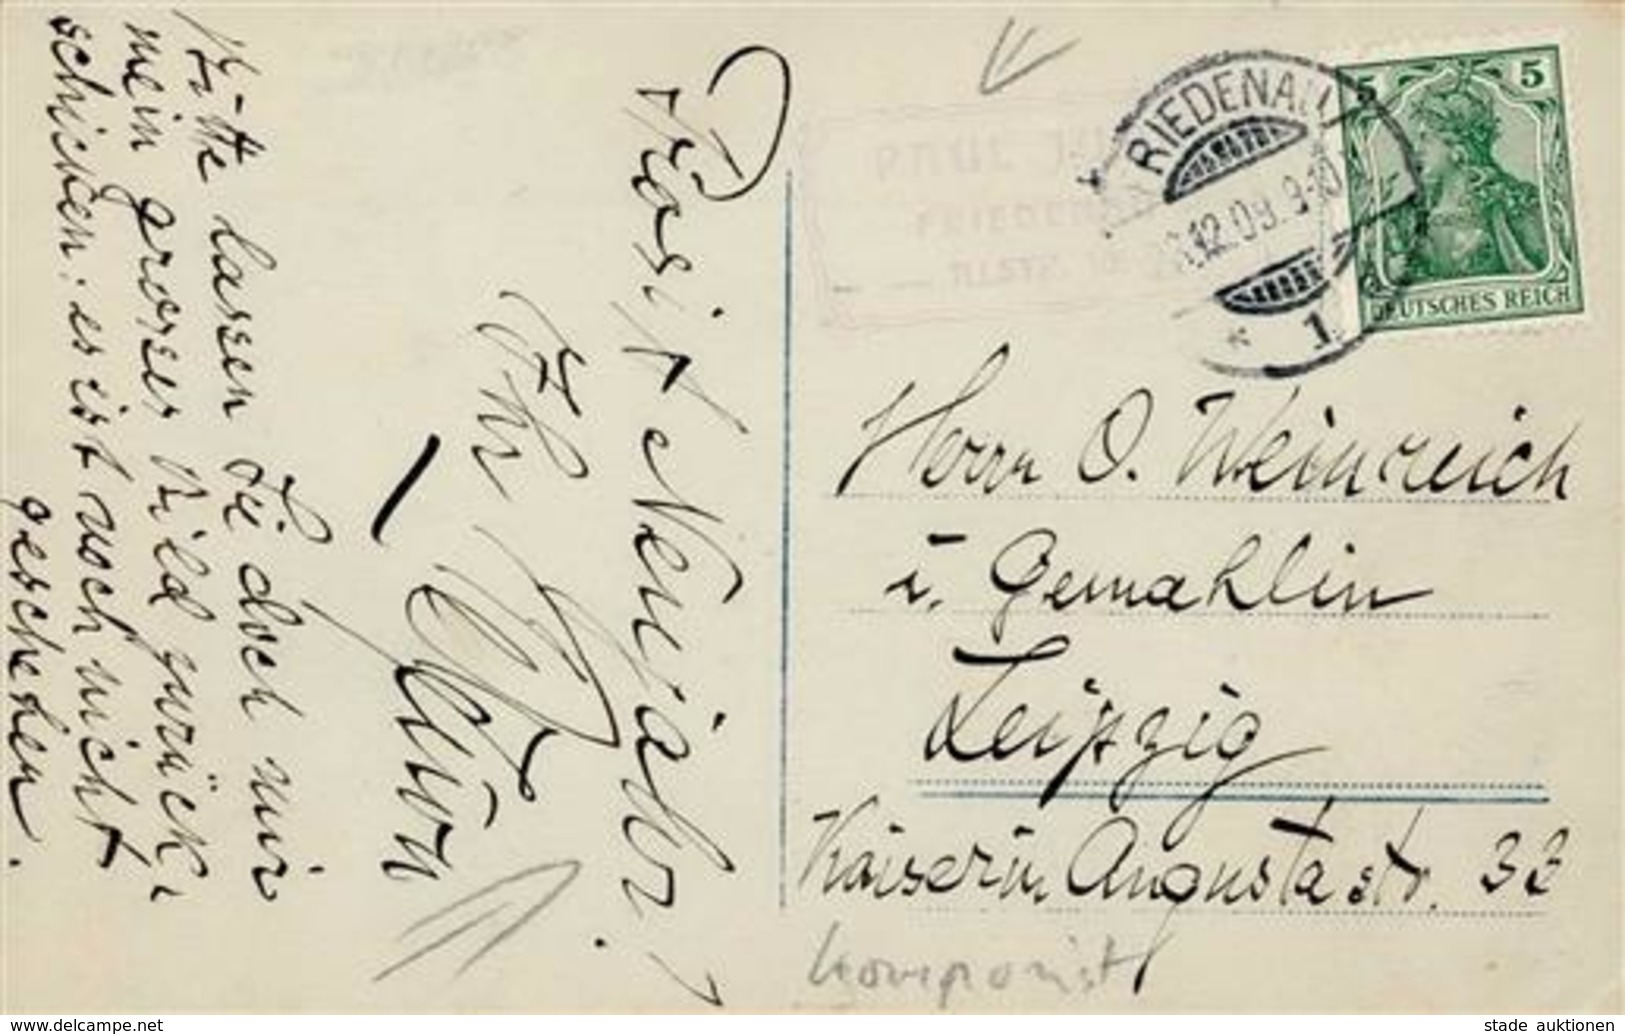 Prosit Neujahr!
Ihr
Bitte lassen Sie doch mir
mein grosses Bild zurück-
schicken; es ist noch nicht
geschehen.
FRIEDENAU
12.09. 9-10
* 1
5 5
DEUTSCHES REICH
PAUL
FRIEDENAU
Herrn O. Weinreich
u. Gemahlin
Leipzig
Kaiserin Augustastr. 33
Komponist
www.delcampe.net
stade auktionen